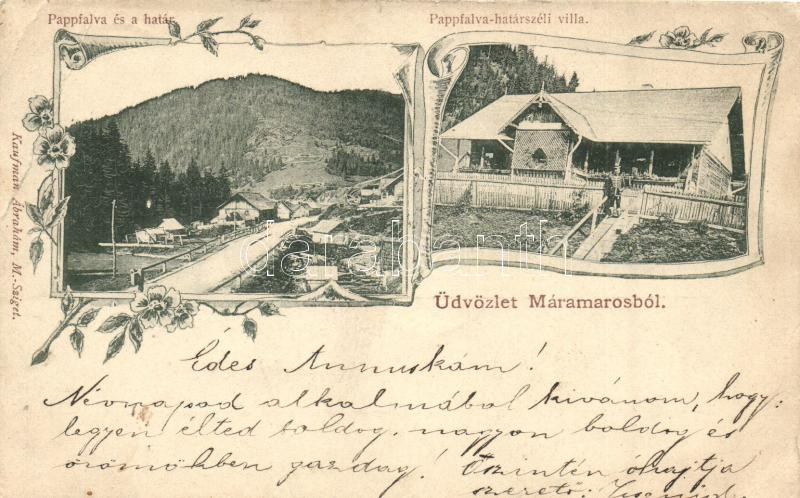 Pappfalva és a határ.
Pappfalva-határszéli villa.
Kaufman Ábrahám, M.-Sziget.
darabanth
Üdvözlet Máramarosból.
Édes Annuskám!
Névnapod alkalmából kivánom, hogy:
legyen élted boldog, nagyon boldog és
örömökben gazdag! Őszintén óhajtja
szerető: